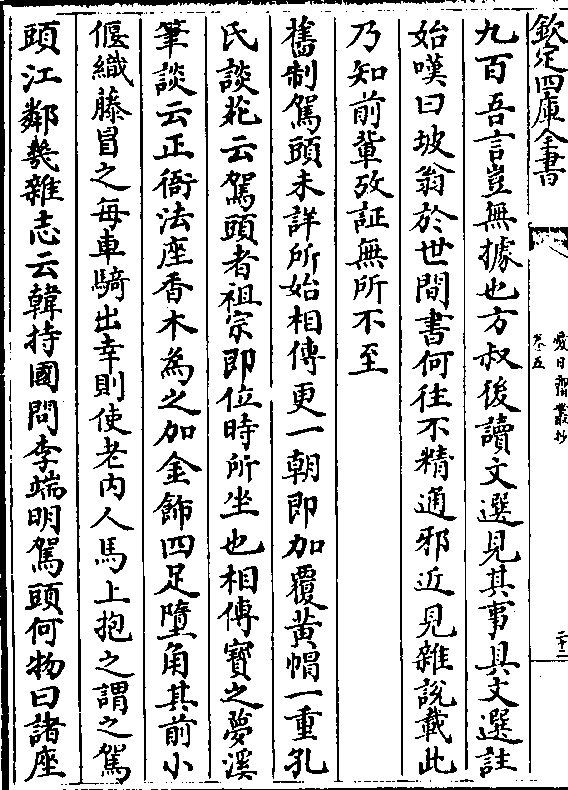 欽定四庫全書
愛日齋叢抄
卷五
二十二
九百吾言豈無據也方叔後讀文選見其事具文選註
始嘆曰坡翁於世間書何往不精通邪近見雜說載此
乃知前輩攷証無所不至
舊制駕頭未詳所始相傳更一朝即加覆黃帽一重孔
氏談苑云駕頭者祖宗即位時所坐也相傳寳之夢溪
筆談云正衙法座香木為之加金飾四足墮角其前小
偃織藤冒之每車騎出幸則使老內人馬上抱之謂之駕
頭江鄰幾雜志云韓持國問李端明駕頭何物曰諸座